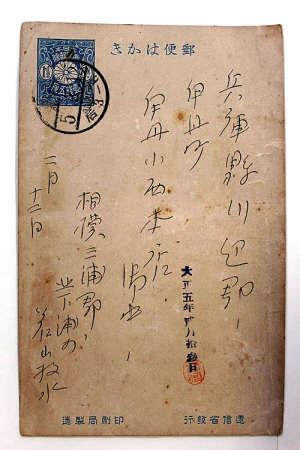 郵便はかき
兵庫縣川辺郡、
伊丹町
伊丹小西本店
大正五年貳月拾叁日
相模三浦郡、
北下浦
若山牧水
二月
十二日
遞信省發行
印刷局製造